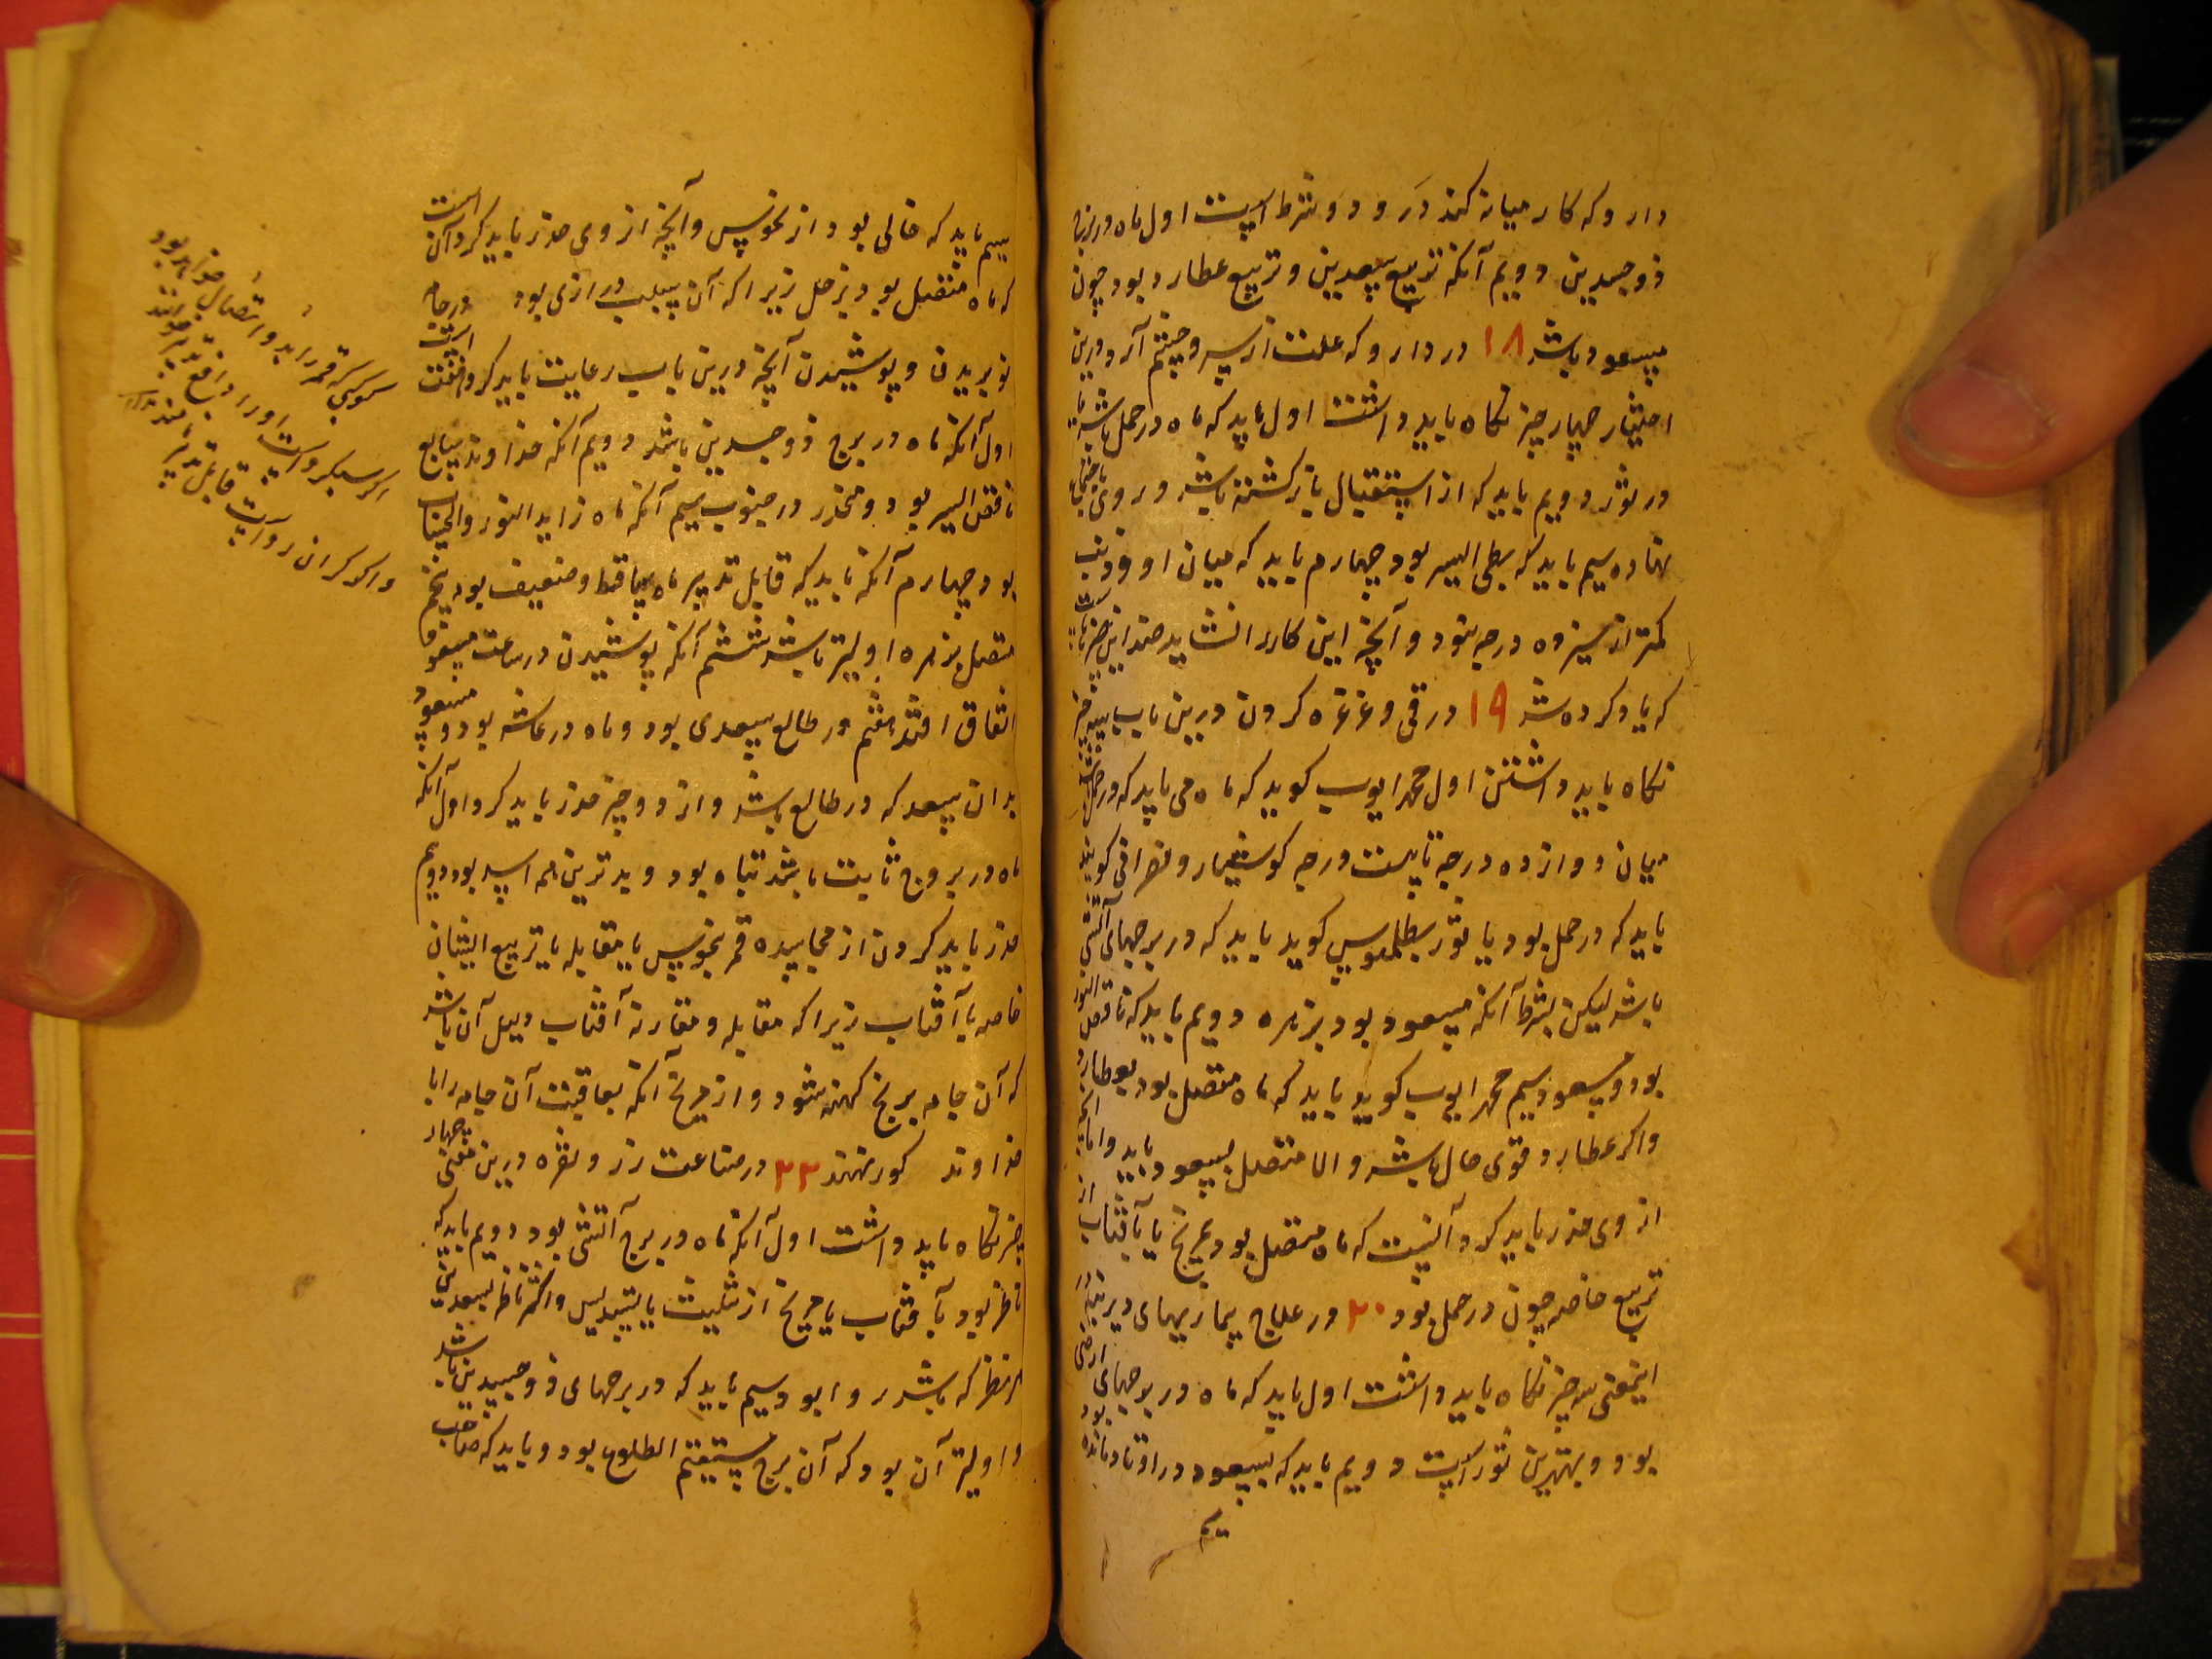 دارو که کار میانه کند درو دو شرط است اول ماه در برجهاء
ذوجسدین دویم آنکه تربیع سعدین و تربیع عطارد بود چون
مسعود باشد ۱۸ در دارو که علت از سر و چشم آرد درین
اختیار چهار چیز نکاه باید داشت اول باید که ماه در حمل باشد یا
در ثور دویم باید که از استقبال باز کشته باشد و روی باجتماع
نهاده سیم باید که بطی السیر بود چهارم باید که میان او و ذنب
کمتر از سیزده درجه بنود و آنچه این کار را نشاید ضد این چیزهاست
که یاد کرده شد ۱۹ در قی و غرغره کردن درین باب سه چیز
نکاه باید داشتن اول محمد ایوب کوید که ماه می باید که در حمل باشد
میان دوازده درجه تا بیست درجه کوشیار و نصرانی کویند
باید که در حمل بود یا ثور بطلمیوس کوید باید که در برجهای آتشی
باشد لیکن بشرط آنکه مسعود بود بزهره دویم باید که ناقص النور
بود و مسعود سیم محمد ایوب کوید باید که ماه متصل بود بعطارد
واکر عطارد قوی حال باشد والا متصل بسعود باید واما آنچه
از وی حذر باید کرد آنست که ماه متصل بود بمریخ یا بآفتاب از
تربیع خاصه چون در حمل بود ۲۰ در علاج بیماریهای دیرینه
اینمعنی سه چیز نکاه باید داشت اول باید که ماه در برجهای ارضی
بود و بهترین ثور است دویم باید که بسعود در اوتاد مانده بود
سیم باید که خالی بود از نحوس وآنچه از وی حذر باید کرد آن است
که ماه متصل بود بزحل زیرا که آن سبب درازی بود در جامه
نو بریدن و پوشیدن آنچه درین باب رعایت باید کرد هفت است
اول آنکه ماه در برج ذوجسدین باشد دویم آنکه خداوند سابع
ناقص السیر بود و منحدر در جنوب سیم آنکه ماه زاید النور والحساب
بود چهارم آنکه باید که قابل تدبیر ماه ساقط و ضعیف بود پنجم
متصل بزهره اولیتر باشد ششم آنکه پوشیدن در ساعت مسعود
اتفاق افتد هفتم در طالع سعدی بود و ماه در عاشر بود و مسعود
بدان سعد که در طالع باشد و از دو چیز حذر باید کرد اول آنکه
ماه در بروج ثابت باشد تباه بود و بدترین همه اسد بود دویم
حذر باید کردن از مجاسده قمر بنحوس یا مقابله یا تربیع ایشان
خاصه با آفتاب زیرا که مقابله و مقارنه آفتاب دلیل آن باشد
که آن جامه برنج کهنه شود و از مریخ آنکه بعاقبت آن جامه را با
خداوند کور نهند ۲۲ در صناعت زر و نقره درین معنی چهار
چیز نکاه باید داشت اول آنکه ماه در برج آتشی بود دویم باید که
ناظر بود بآفتاب یا مریخ از تثلیث یا تسدیس واکر ناظر بسعدین
هر نظر که باشد روا بود سیم باید که در برجهای ذوجسدین باشد
و اولیتر آن بود که آن برج مستقیم الطلوع بود و باید که صاحب
کوکبی که قمر را بدو اتصال خواهد بود
اکر سبکرو است اورا دافع تدبیر خوانند
واکر کران رو است قابل تدبیر